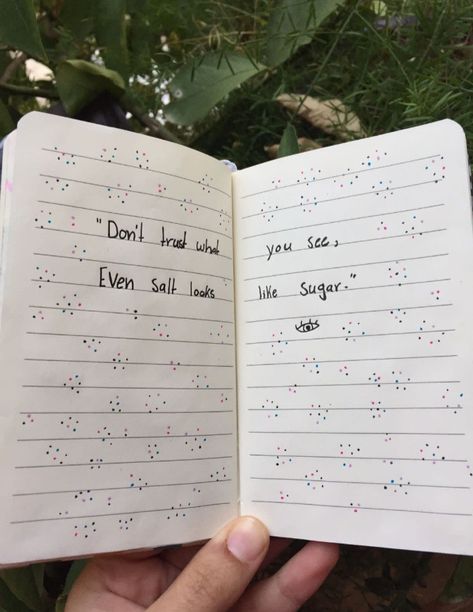 "Don't trust what you see,
Even salt looks like sugar."